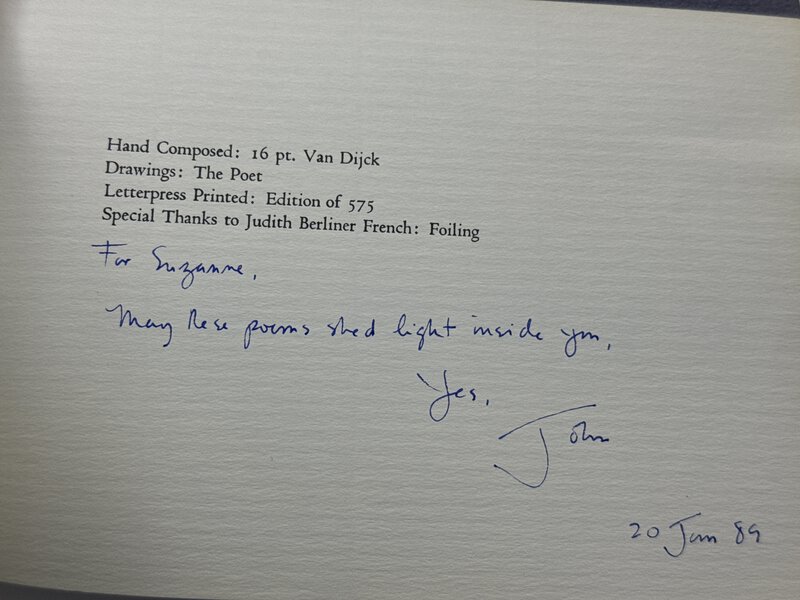 Hand Composed: 16 pt. Van Dijck
Drawings: The Poet
Letterpress Printed: Edition of 575
Special Thanks to Judith Berliner French: Foiling
For Suzanne,
May these poems shed light inside you,
Yes,
John
20 Jan 89